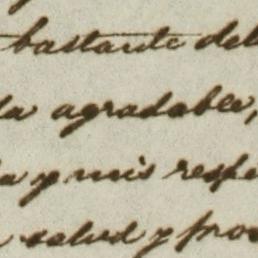 bastante del
la agradable,
a y mis respe
salud y pros